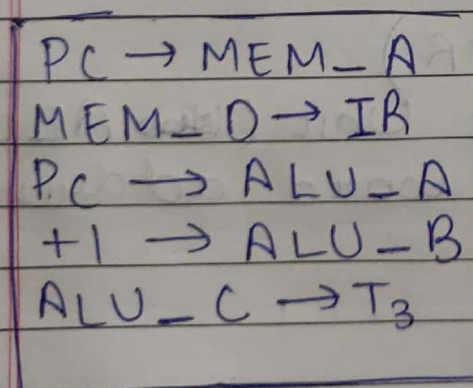 PC → MEM_A
MEM_D → IR
PC → ALU_A
+1 → ALU_B
ALU_C → T3